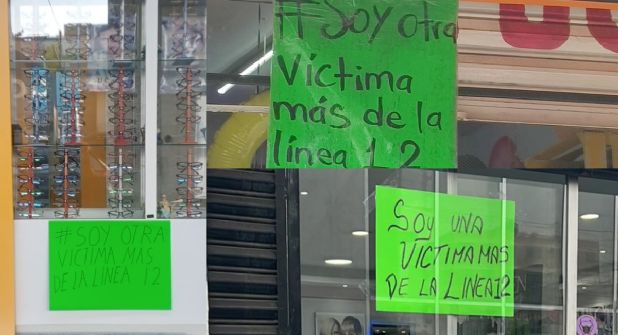 #SOY OTRA
VICTIMA MAS
DE LA LINEA 12
#SOY otra
Víctima
más de la
línea 12
SOY UNA
VICTIMA MAS
DE LA LINEA12